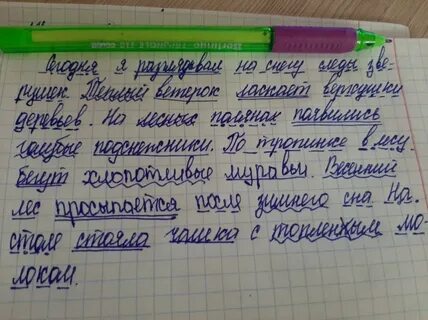 Berlingo
Сегодня я разглядывал на снегу следы зве-
рушек. Тёплый ветерок ласкает верхушки
деревьев. На лесных полянах появились
голубые подснежники. По тропинке в лесу
бегут хлопотливые муравьи. Весенний
лес просыпается после зимнего сна На-
столе стояла чашка с топленным мо-
локом.